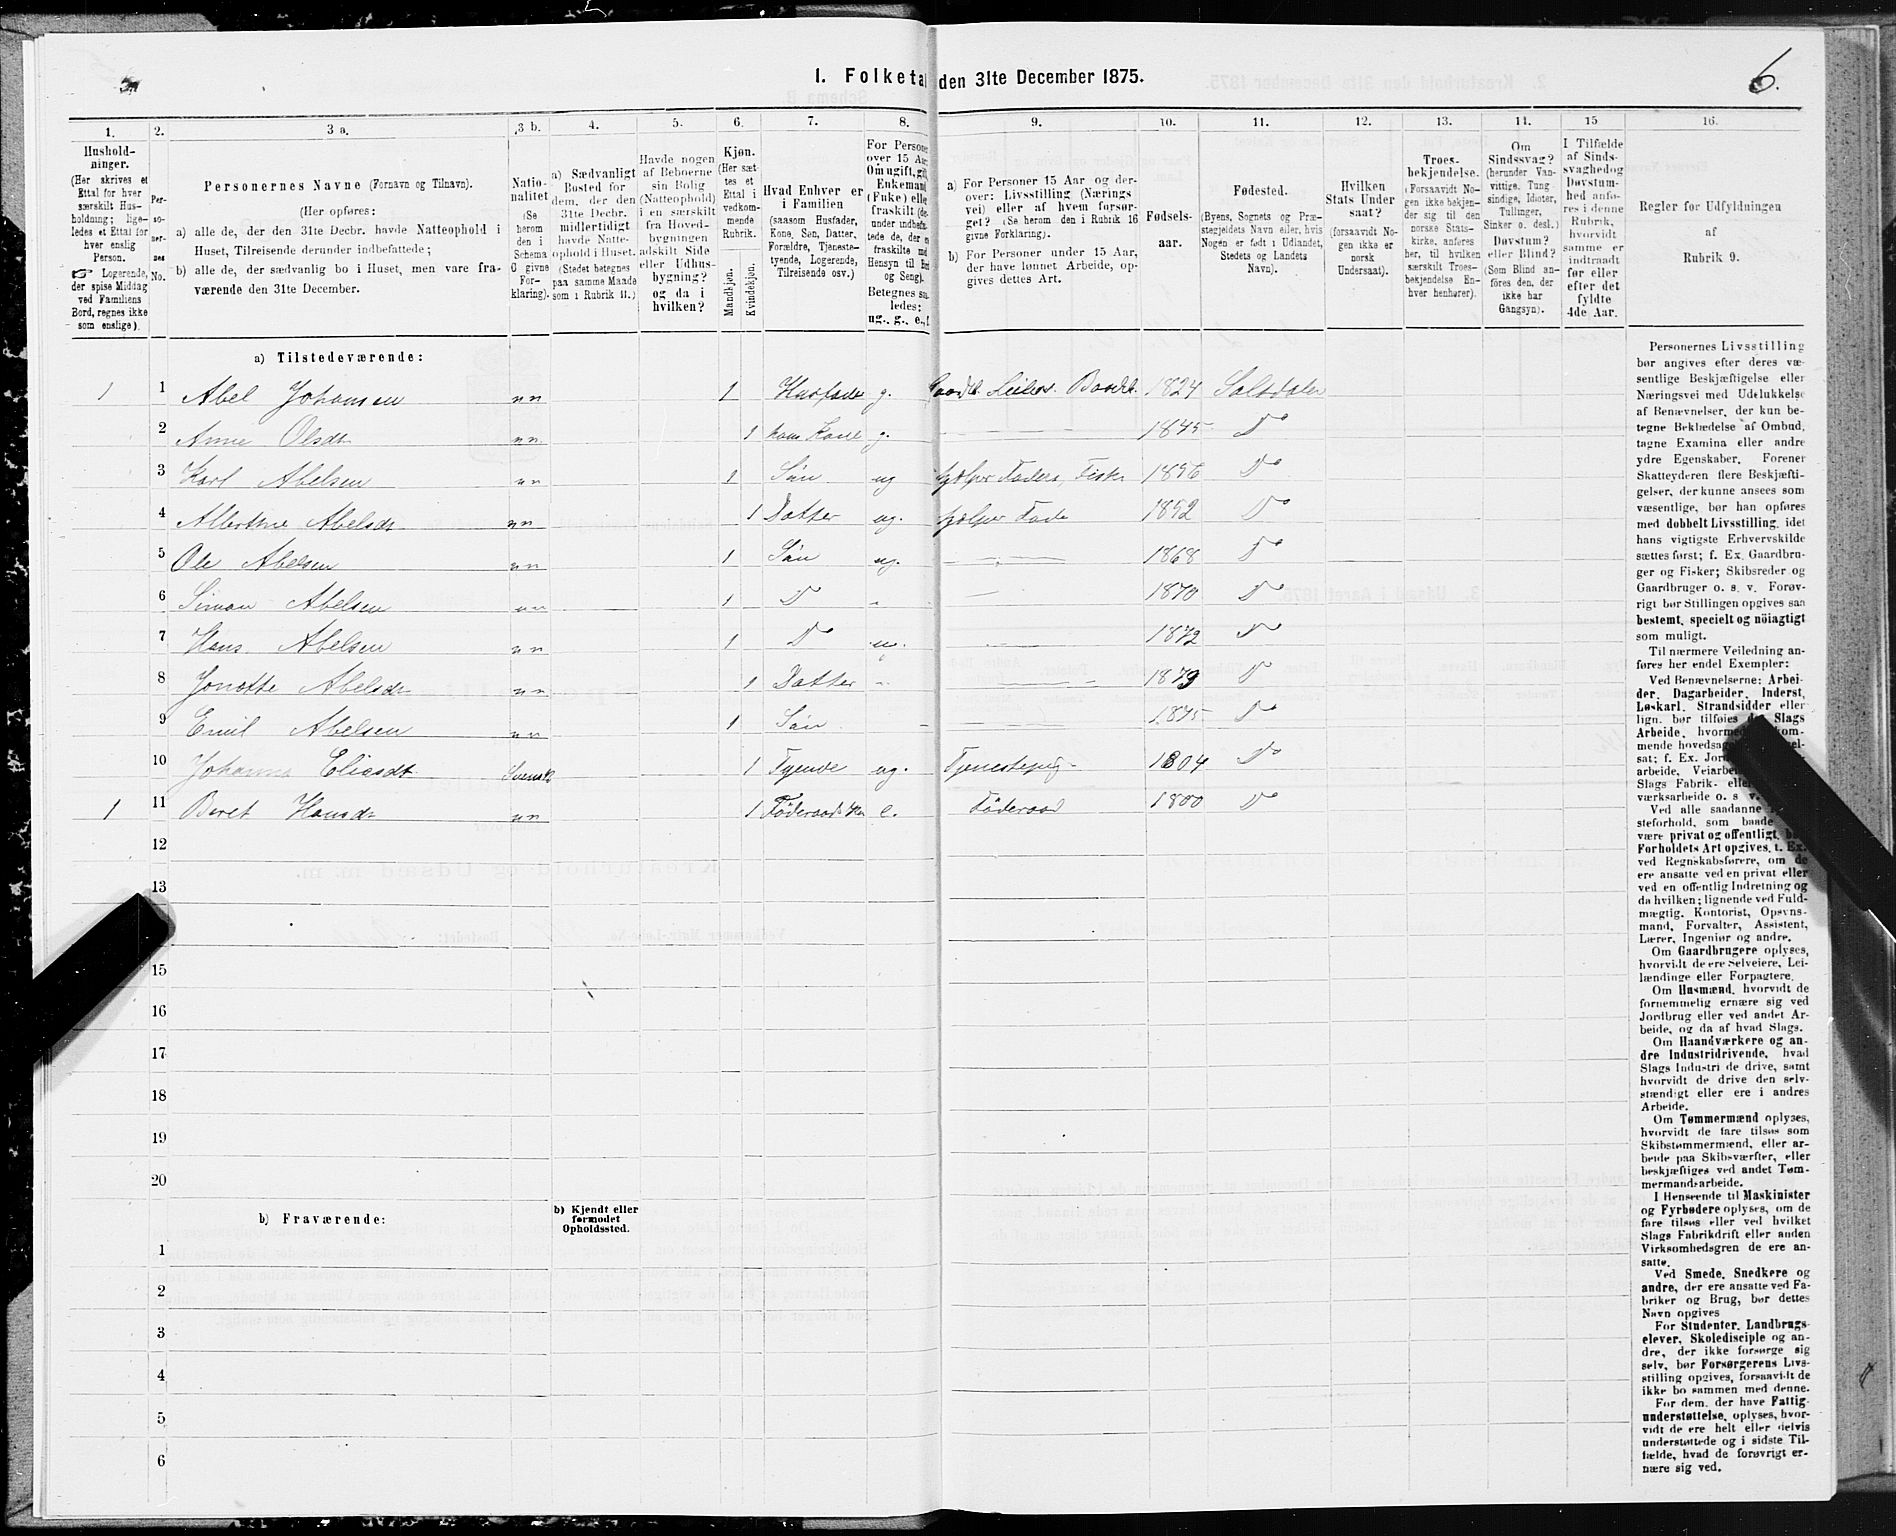 1. Folketal den 31te December 1875.
6.
1. 2. 3 a. 3 b. 4. 5. 6. 7. 8. 9. 10. 11. 12. 13. 14. 15 16.
Hushold-
ninger.
(Her skrives et
Ettal for hver
særskilt Hus-
holdning; lige-
ledes et Ettal for
hver enslig
Person.
☞ Logerende,
der spise Middag
ved Familiens
Bord, regnes ikke
som enslige).
Per-
so-
ner-
nes
No.
Personernes Navne (Fornavn og Tilnavn).
(Her opføres:
a) alle de, der den 31te Decbr. havde Natteophold i
Huset, Tilreisende derunder indbefattede;
b) alle de, der sædvanlig bo i Huset, men vare fra-
værende den 31te December.
Natio-
nalitet
(Se
herom
den i
Schema
C givne
For-
klaring).
a) Sædvanligt
Bosted for
dem, der den
31te Decbr.
midlertidigt
havde Natte-
ophold i Huset.
(Stedet betegnes
paa samme Maade
som i Rubrik 11.)
Havde nogen
af Beboerne
sin Bolig
(Natteophold)
i en særskilt
fra Hoved-
bygningen
adskilt Side
eller Udhus-
bygning?
og da i
hvilken?
Kjøn.
(Her sæt-
tes et
Ettal i
vedkom-
mende
Rubrik.
Mandkjøn.
Kvindekjøn.
Hvad Enhver er
i Familien
(saasom Husfader,
Kone, Søn, Datter,
Forældre, Tjeneste-
tyende, Logerende,
Tilreisende osv.)
For Persone
over 15 Aa
Om ugift, gif
Enkemand
(Fuke) elle
fraskilt (de
under indbefa
tede de, der
fraskilte
Hensyn til
og Seng).
Betegnes sa
ledes:
ug., g., e.,
a) For Personer 15 Aar og der-
over: Livsstilling (Nærings-
vei) eller af hvem forsør-
get? (Se herom den i Rubrik 16
givne Forklaring).
b) For Personer under 15 Aar,
der have lønnet Arbeide, op-
gives dettes Art.
Fødsels-
aar.
Fødested.
(Byens, Sognets og Præ-
stegjeldets Navn eller, hvis
Nogen er født i Udlandet,
Stedets og Landets
Navn).
Hvilken
Stats Under
saat?
(forsaavidt No-
gen ikke er
norsk
Undersaat).
Troes-
bekjendelse.
(Forsaavidt No-
gen ikke bekjen-
der sig til den
norske Stats-
kirke, anføres
her, til hvilken
særskilt Troes-
bekjendelse En-
hver henhører).
Om
Sindssvag?
(herunder Van-
vittige, Tung-
sindige, Idioter,
Tullinger,
Sinker o. desl.)
Døvstum?
eller Blind?
(Som Blind an-
føres den, der
ikke har
Gangsyn).
I Tilfælde
af Sinds-
svaghed og
Døvstum-
hed anfø-
res i denne
Rubrik,
hvorvidt
samme er
indtraadt
før eller
efter det
fyldte
4de Aar.
Regler for Udfyldningen
af
Rubrik 9.
a) Tilstedeværende:
1 1 Abel Johansen nn 1 Husfader g. Gaardb. Leilend. 1824 Saltdalen
2 Anne Olsdt nn 1 hans Kone g. 1845 Do
3 Karl Abelsen nn 1 Søn ug hjelper Faders Fisker 1856 Do
4 Albertine Abelsdt nn 1 Datter ug. hjelper Fade 1852 Do
5 Ole Abelsen nn 1 Søn ug. 1868 Do
6 Simon Abelsen nn 1 Do 1870 Do
7 Hans Abelsen nn 1 Do 1872 Do
8 Abelsdt nn 1 Datter 1873 Do
9 Emil Abelsen nn 1 Søn 1875 Do
10 Johanna Eliasdt Svensk 1 Tyende ug. Tjenestepig Do
1 11 Beret Hansdt nn 1 Føderaads e. Føderaad 1800 Do
12
13
15
16
17
18
19
20
b) Fraværende:
b) Kjendt eller
formodet
Opholdssted.
1
2
3
4
5
6
Personernes Livsstilling
bør angives efter deres væ-
sentlige Beskjæftigelse eller
Næringsvei med Udelukkelse
af Benævnelser, der kun be-
tegne Beklædelse af Ombud,
tagne Examina eller andre
ydre Egenskaber. Forener
Skatteyderen flere Beskjæfti-
gelser, der kunne ansees som
væsentlige, bør han opføres
med dobbelt Livsstilling, idet
hans vigtigste Erhvervskilde
sættes først; f. Ex. Gaardbru-
ger og Fisker; Skibsreder og
Gaardbruger o. s. v. Forøv-
rigt bør Stillingen opgives saa
bestemt, specielt og nöiagtigt
som muligt.
Til nærmere Veiledning an-
føres her endel Exempler:
Ved Benævnelserne: Arbei-
der, Dagarbeider, Inderst,
Løskarl, Strandsidder eller
lign. bør tilføies Slags
Arbeide, hvorme kom-
mende hovedsag sel-
sat; f. Ex. Jor
arbeide, Veiarbe
Slags Fabrik- elle
værksarbeide o. s v.
Ved alle saadanne
steforhold, som baade
være privat og offentligt,
Forholdets Art opgives, t. Ex.
ved Regnskabsførere, om de
ere ansatte ved en privat eller
ved en offentlig Indretning og
da hvilken; lignende ved Fuld-
mægtig, Kontorist, Opsyns-
mand, Forvalter, Assistent,
Lærer, Ingeniør og andre.
Om Gaardbrugere oplyses,
hvorvidt de ere Selveiere, Lei-
lændinge eller Forpagtere.
Om Husmænd, hvorvidt de
fornemmelig ernære sig ved
Jordbrug eller ved andet Ar-
beide, og da af hvad Slags.
Om Haandværkere og an-
dre Industridrivende, hvad
Slags Industri de drive, samt
hvorvidt de drive den selv-
stændigt eller ere i andres
Arbeide.
Om Tømmermænd oplyses,
hvorvidt de fare tilsøs som
Skibstømmermænd, eller ar-
beide paa Skibsværfter, eller
beskjæftiges ved andet Tøm-
mermandsarbeide.
I Henseende til Maskinister
og Fyrbødere oplyses, om de
fare tilsøs eller ved hvilket
Slags Fabrikdrift eller anden
Virksomhedsgren de ere an-
satte.
Ved Smede, Snedkere og
andre, der ere ansatte ved Fa-
briker og Brug, bør dettes
Navn opgives
For Studenter, Landbrugs-
elever, Skoledisciple og an-
dre, der ikke forsørge sig
selv, bør Forsørgerens Livs-
stilling opgives, forsaavidt de
ikke bo sammen med denne.
For dem, der have Fattig-
understøttelse, oplyses, hvor-
vidt de ere helt eller delvis
understøttede og i sidste Til-
fælde, hvad de forøvrigt er-
nære sig ved.